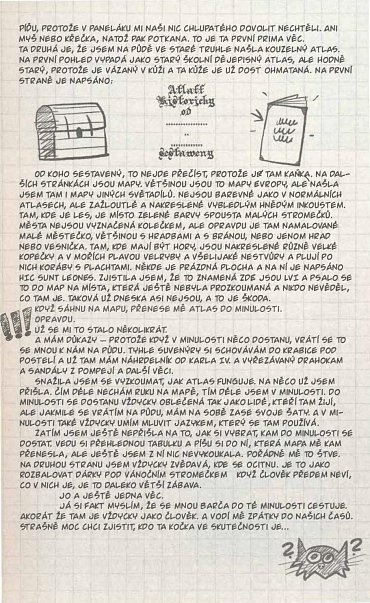 PÍĎU, PROTOŽE V PANELÁKU MI NAŠI NIC CHLUPATÉHO DOVOLIT NECHTĚLI. ANI
MYŠ NEBO KŘEČKA, NATOŽ PAK POTKANA. TO JE TA PRIMA VĚC.
TA DRUHÁ JE, ŽE JSEM NA PŮDĚ VE STARÉ TRUHLE NAŠLA KOUZELNÝ ATLAS.
NA PRVNÍ POHLED VYPADÁ JAKO STARÝ ŠKOLNÍ DĚJEPISNÝ ATLAS, ALE HODNĚ
STARÝ, PROTOŽE JE VÁZANÝ V KŮŽI A TA KŮŽE JE UŽ DOST OHMATANÁ. NA PRVNÍ
STRANĚ JE NAPSÁNO:
Atlass
Historicky
od
..............
..
..............
Sestaweny
OD KOHO SESTAVENÝ, TO NEJDE PŘEČÍST, PROTOŽE JE TAM KAŇKA. NA DAL-
ŠÍCH STRÁNKÁCH JSOU MAPY. VĚTŠINOU JSOU TO MAPY EVROPY, ALE NAŠLA
JSEM TAM I MAPY JINÝCH SVĚTADÍLŮ. NEJSOU BAREVNÉ JAKO V NORMÁLNÍCH
ATLASECH, ALE ZAŽLOUTLÉ A NAKRESLENÉ VYBLEDLÝM HNĚDÝM INKOUSTEM.
TAM, KDE JE LES, JE MÍSTO ZELENÉ BARVY SPOUSTA MALÝCH STROMEČKŮ.
MĚSTA NEJSOU VYZNAČENÁ KOLEČKEM, ALE OPRAVDU JE TAM NAMALOVANÉ
MALÉ MĚSTEČKO, VĚTŠINOU S HRADBAMI A S BRÁNOU, NEBO JENOM HRAD
NEBO VESNIČKA. TAM, KDE MAJÍ BÝT HORY, JSOU NAKRESLENÉ RŮZNĚ VELKÉ
KOPEČKY A V MOŘÍCH PLAVOU VELRYBY A VŠELIJAKÉ NESTVŮRY A PLUJÍ PO
NICH KORÁBY S PLACHTAMI. NĚKDE JE PRÁZDNÁ PLOCHA A NA NÍ JE NAPSÁNO
HIC SUNT LEONES. ZJISTILA JSEM, ŽE TO ZNAMENÁ ZDE JSOU LVI A PSALO SE
TO DO MAP NA MÍSTA, KTERÁ JEŠTĚ NEBYLA PROZKOUMANÁ A NIKDO NEVĚDĚL,
CO TAM JE. TAKOVÁ UŽ DNESKA ASI NEJSOU, A TO JE ŠKODA.
KDYŽ SÁHNU NA MAPU, PŘENESE MĚ ATLAS DO MINULOSTI.
!!! OPRAVDU.
UŽ SE MI TO STALO NĚKOLIKRÁT.
A MÁM DŮKAZY – PROTOŽE KDYŽ V MINULOSTI NĚCO DOSTANU, VRÁTÍ SE TO
SE MNOU K NÁM NA PŮDU. TYHLE SUVENÝRY SI SCHOVÁVÁM DO KRABICE POD
POSTELÍ A UŽ TAM MÁM NÁHRDELNÍK OD KARLA IV. A VYŘEZÁVANÝ DRAHOKAM
A SANDÁLY Z POMPEJÍ A DALŠÍ VĚCI.
SNAŽILA JSEM SE VYZKOUMAT, JAK ATLAS FUNGUJE. NA NĚCO UŽ JSEM
PŘIŠLA. ČÍM DÉLE NECHÁM RUKU NA MAPĚ, TÍM DÉLE JSEM V MINULOSTI. DO
MINULOSTI SE DOSTANU VŽDYCKY OBLEČENÁ TAK JAKO LIDÉ, KTEŘÍ TAM ŽIJÍ,
ALE JAKMILE SE VRÁTÍM NA PŮDU, MÁM NA SOBĚ ZASE SVOJE ŠATY. A V MI-
NULOSTI TAKÉ VŽDYCKY UMÍM MLUVIT JAZYKEM, KTERÝ SE TAM POUŽÍVÁ.
ZATÍM JSEM JEŠTĚ NEPŘIŠLA NA TO, JAK SI VYBRAT, KAM DO MINULOSTI SE
DOSTAT. VEDU SI PŘEHLEDNOU TABULKU A PÍŠU SI DO NÍ, KTERÁ MAPA MĚ KAM
PŘENESLA, ALE JEŠTĚ JSEM Z NÍ NIC NEVYKOUKALA. POŘÁDNĚ MĚ TO ŠTVE.
NA DRUHOU STRANU JSEM VŽDYCKY ZVĚDAVÁ, KDE SE OCITNU. JE TO JAKO
ROZBALOVAT DÁRKY POD VÁNOČNÍM STROMEČKEM KDYŽ ČLOVĚK PŘEDEM NEVÍ,
CO V NICH JE, JE TO DALEKO VĚTŠÍ ZÁBAVA.
JO A JEŠTĚ JEDNA VĚC.
JÁ SI FAKT MYSLÍM, ŽE SE MNOU BARČA DO TÉ MINULOSTI CESTUJE.
AKORÁT ŽE TAM JE VŽDYCKY JAKO ČLOVĚK. A VODÍ MĚ ZPÁTKY DO NAŠICH ČASŮ.
STRAŠNĚ MOC CHCI ZJISTIT, KDO TA KOČKA VE SKUTEČNOSTI JE...
? ?